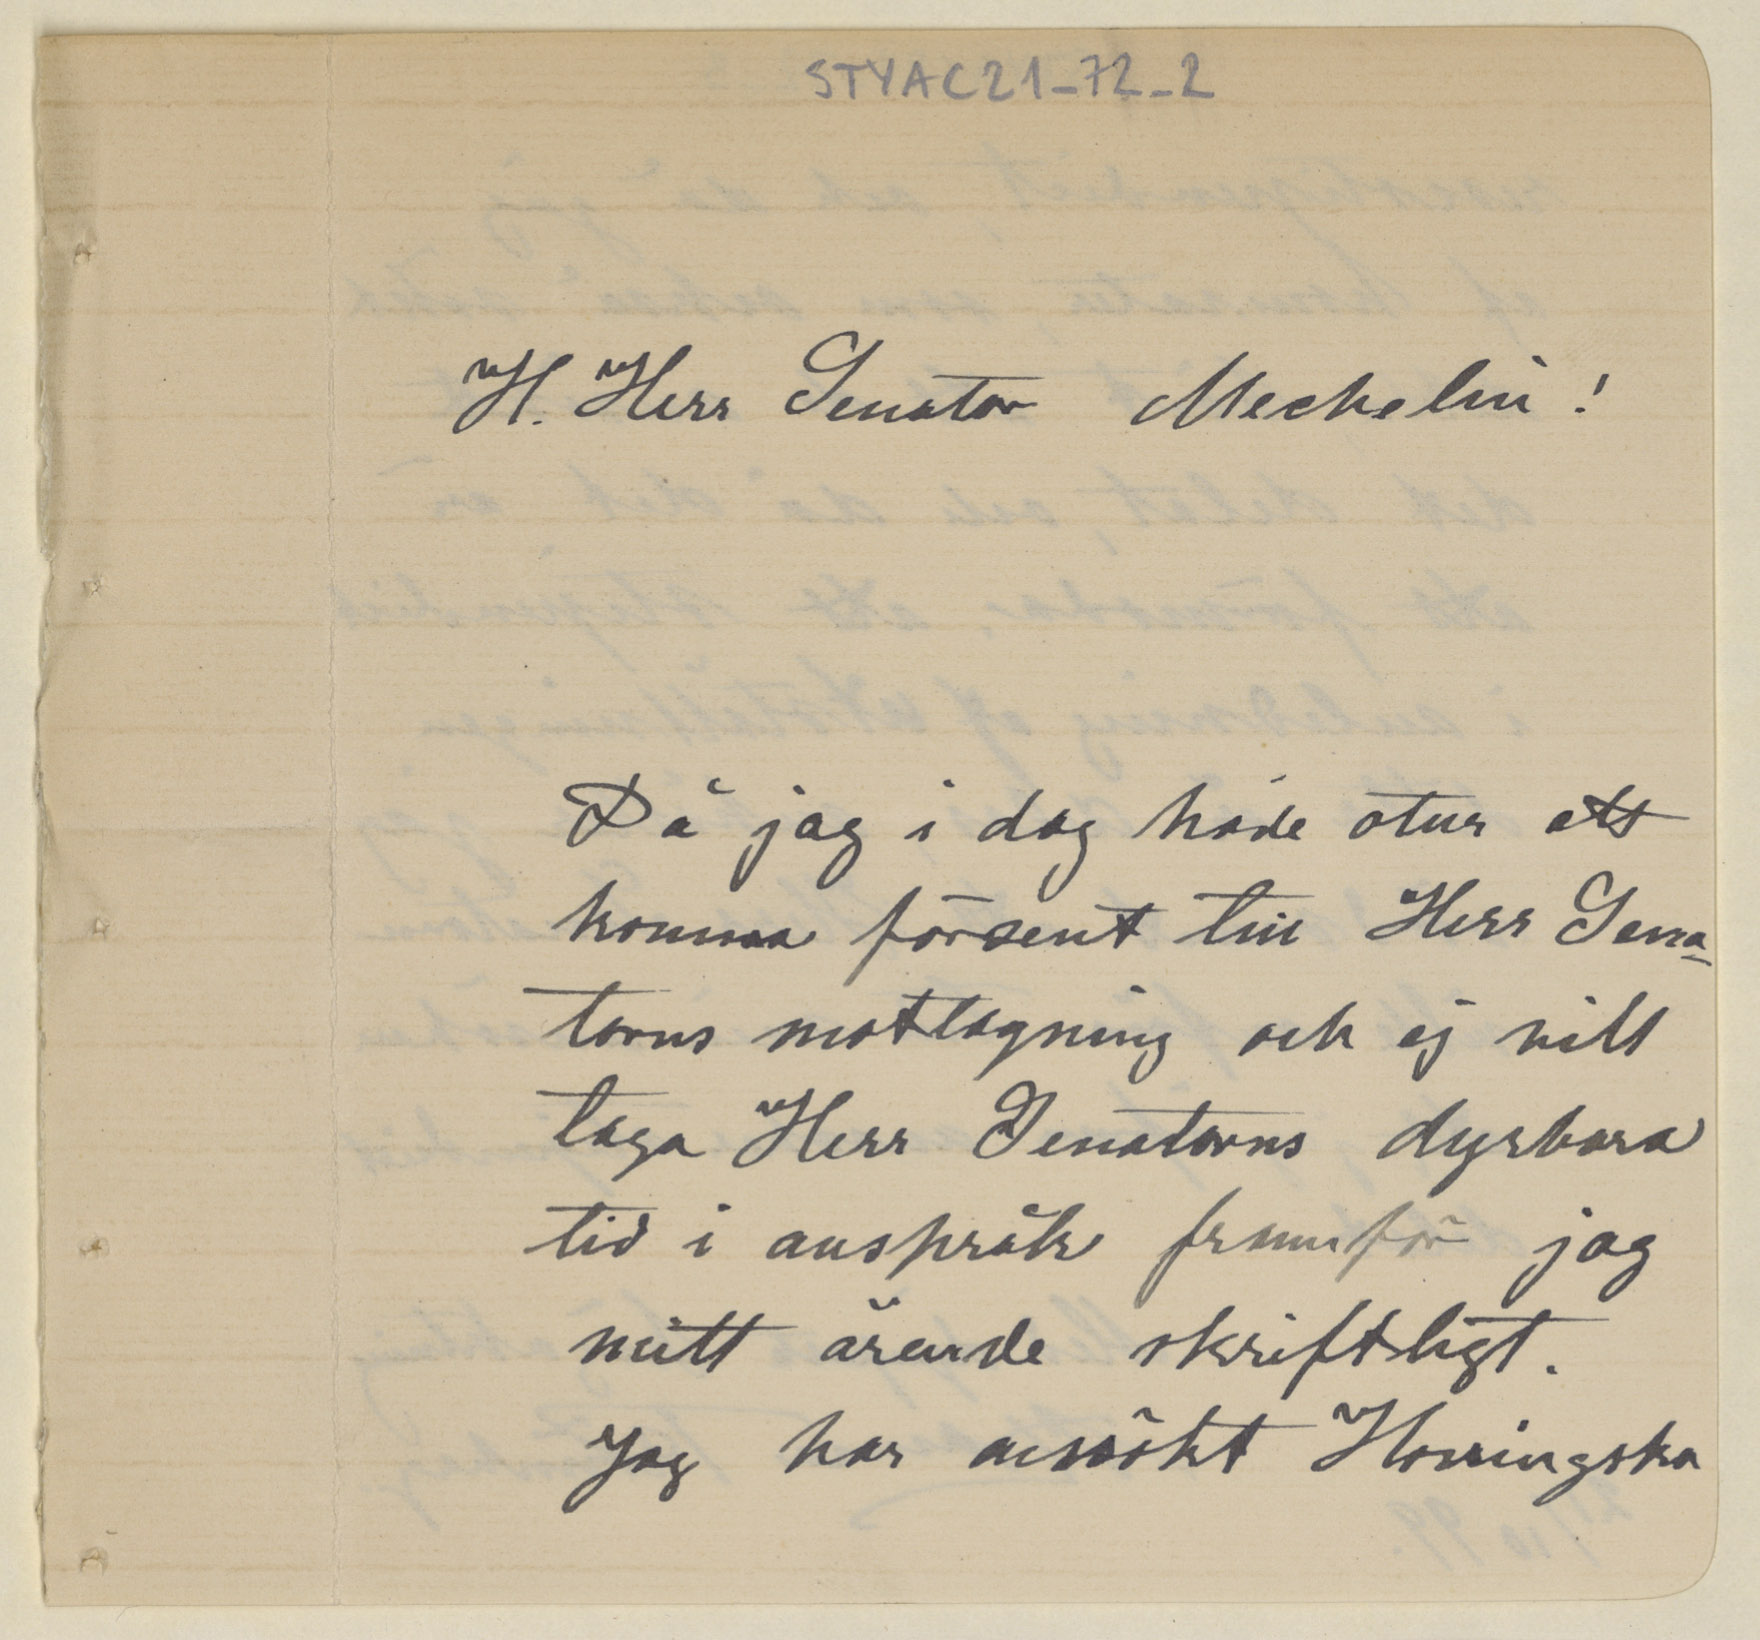 STYAC21_72_2
H. Herr Senator Mechelin!
Då jag i dag hade otur att
komma försent till Herr Sena-
torns mottagning och ej vill
taga Herr Senatorns dyrbara
tid i anspråk framför jag
mitt ärende skriftligt.
Jag har ansökt Hovingska